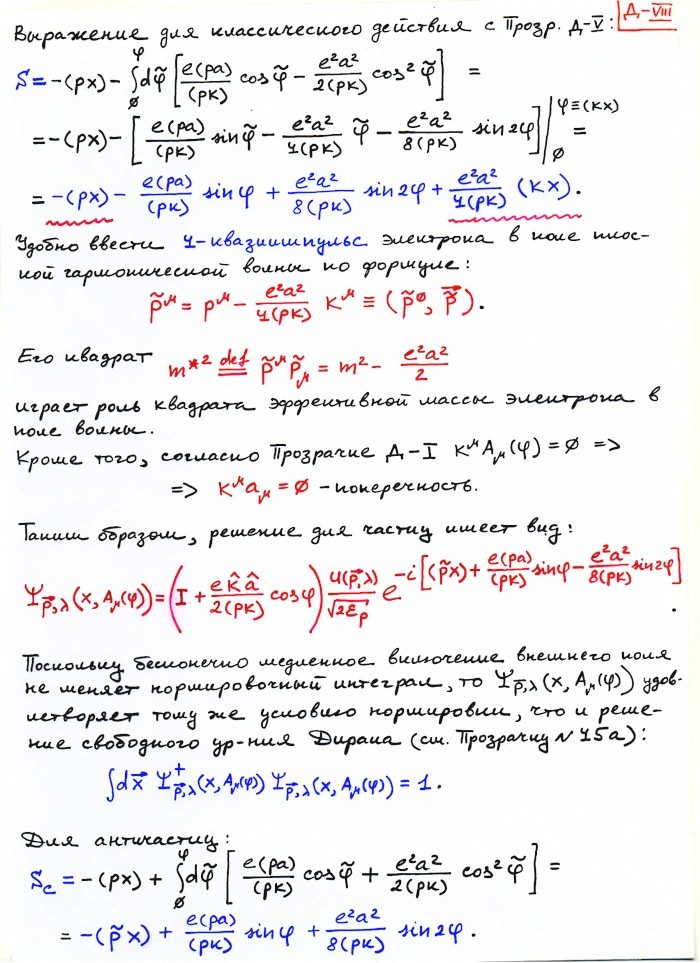 Выражение для классического действия с Прозр. Д-V: Д-VIII
S = -(px) - ∫_0^φ dφ̃ [ e(pa)/(pk) cos φ̃ - e²a²/2(pk) cos² φ̃ ] =
= -(px) - [ e(pa)/(pk) sin φ̃ - e²a²/4(pk) φ̃ - e²a²/8(pk) sin 2φ̃ ] |_0^{φ≡(kx)} =
= -(px) - e(pa)/(pk) sin φ + e²a²/8(pk) sin 2φ + e²a²/4(pk) (kx).
Удобно ввести 4-квазиимпульс электрона в поле плос-
кой гармонической волны по формуле:
p̃^μ = p^μ - e²a²/4(pk) k^μ ≡ (p̃⁰, p̃⃗).
Его квадрат m*² def= p̃^μ p̃_μ = m² - e²a²/2
играет роль квадрата эффективной массы электрона в
поле волны.
Кроме того, согласно Прозрачке Д-I k^μ A_μ(φ) = 0 =>
=> k^μ a_μ = 0 - поперечность.
Таким образом, решение для частиц имеет вид:
Ψ_{p⃗,λ}(x, A_μ(φ)) = (I + e k̂ â/2(pk) cos φ) u(p⃗,λ)/√(2ε_p) e^{-i[(p̃x) + e(pa)/(pk) sin φ - e²a²/8(pk) sin 2φ]}.
Поскольку бесконечно медленное включение внешнего поля
не меняет нормировочный интеграл, то Ψ_{p⃗,λ}(x, A_μ(φ)) удов-
летворяет тому же условию нормировки, что и реше-
ние свободного ур-ния Дирака (см. Прозрачку №15а):
∫dx⃗ Ψ⁺_{p⃗,λ}(x, A_μ(φ)) Ψ_{p⃗,λ}(x, A_μ(φ)) = 1.
Для античастиц:
S_c = -(px) + ∫_0^φ dφ̃ [ e(pa)/(pk) cos φ̃ + e²a²/2(pk) cos² φ̃ ] =
= -(p̃x) + e(pa)/(pk) sin φ + e²a²/8(pk) sin 2φ.